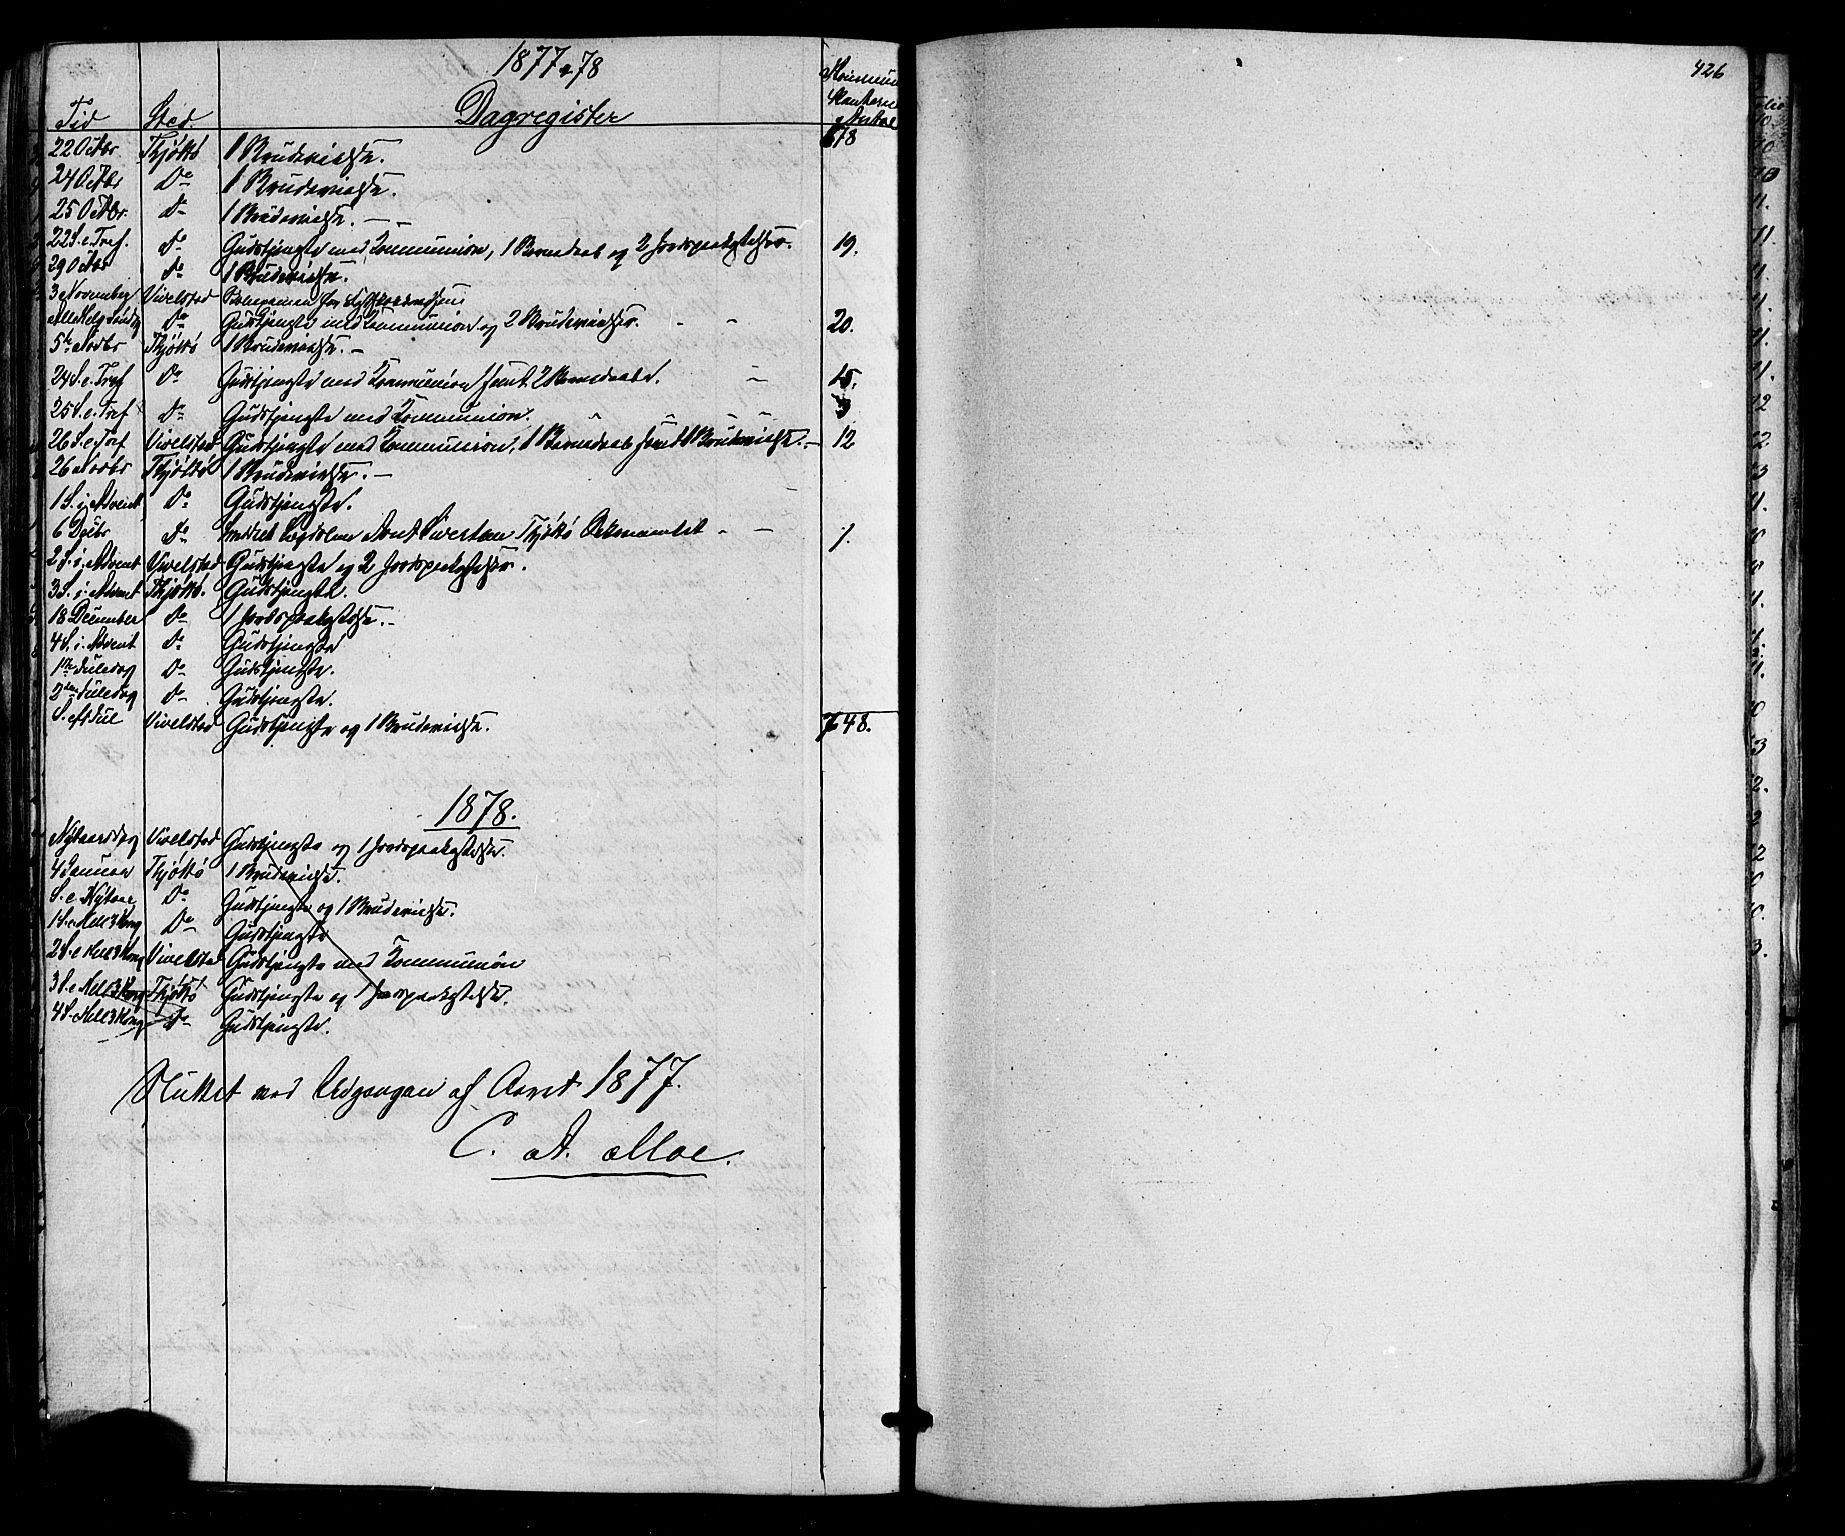 1877 & 78
Tid Sted. Dagregister Kommuni-
kantern
Antal
22 Octbr Thjøttø 1 Brudevielse. 678
24 Octbr Do 1 Brudevielse.
25 Octbr. Do 1 Brudevielse. — —
22 S. e. Tref. Do Gudstjeneste med Communion, 1 Barnedaab og 2 Jordpaakastelser. 19.
29 Octbr Do 1 Brudevielse.
3 November Vivelstad
Alle Helg. Søndg Do Gudstjeneste med Communion og 2 Brudevielser. - - 20.
5te Novbr Thjøttø 1 Brudevielse. —
24 S. e. Tref Do Gudstjeneste med Communion samt 2 Barnedaabe. — 15.
25 S. e. Tref Do Gudstjeneste med Communion. 3
26 S. e. Tref Vivelstad Gudstjeneste med Communion, 1 Barnedaab samt 1 Brudevielse. — 12
26 Novbr Thjøttø 1 Brudevielse. —
1 S. i Advent Do Gudstjeneste.
6 Decbr Do Sivertsen Thjøttø - — 1.
2 S. i. Advent Vivelstad Gudstjeneste og 2 Jordpaakastelser.
3 S. i. Advent Thjøttø. Gudstjeneste.
18 December Do 1 Jordpaakastelse. -
4 S. i. Advent Do Gudstjeneste
1ste Juledag Do Gudstjeneste.
2den Juledag Do Gudstjeneste.
S. ef. Jul Vivelstad Gudstjeneste og 1 Brudevielse. 748.
1878.
Nytaarsdag Vivelstad Gudstjeneste og 1 Jordpaakastelse.
4 Januar Thjøttø 1 Brudevielse.
S. e. Nytaar Do Gudstjeneste og 1 Brudevielse.
1 S. e. Hell 3 Kong Do Gudstjeneste
2 S. e. Hell 3 Kong Vivelstad Gudstjeneste med Communion
3 S. e. Hell 3 Kong Thjøttø Gudstjeneste og 1 Jordpaakastelse.
4 S. Hell 3 Kong Do Gudstjeneste.
Sluttet ved Udgangen af Aaret 1877.
C. A. Moe.
426